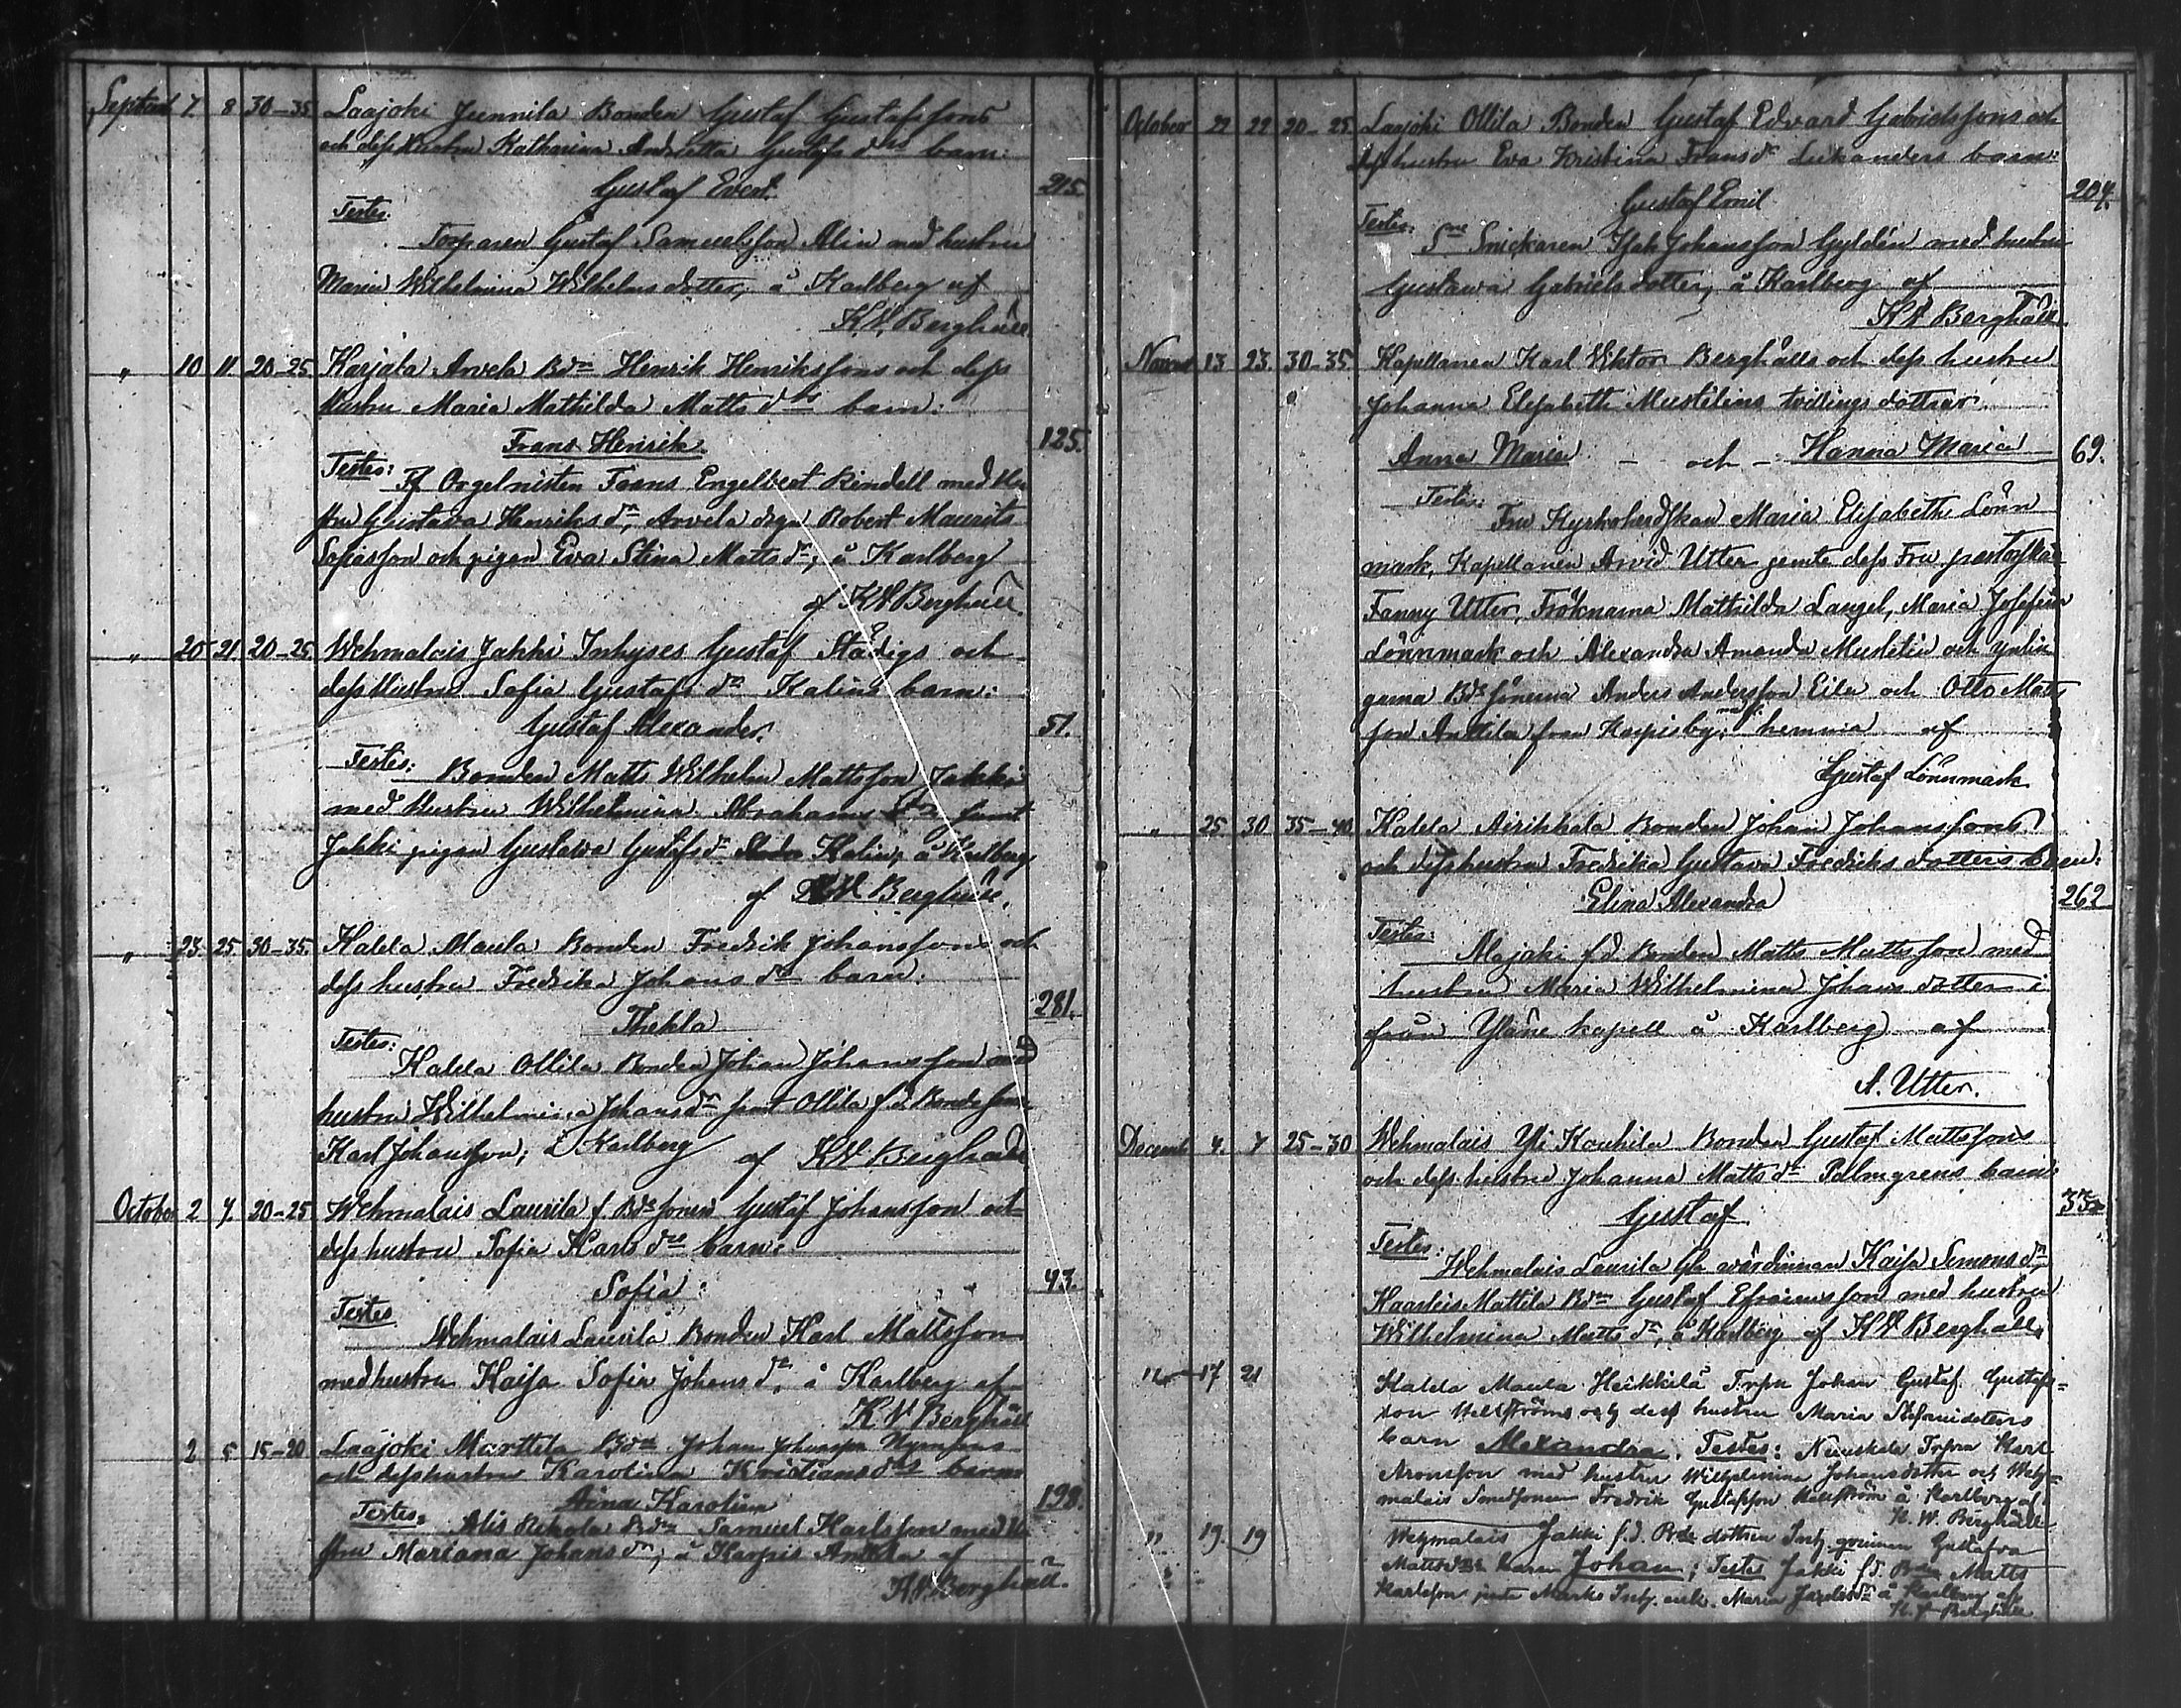 Septemb 7. 8 30–35 Laajoki Junnila Bonden Gustaf Gustafssons
och dess hustru Katharina Andrietta Gustafs drs barn:
Gustaf Evert. 215.
Testes:
Torparen Gustaf Samuelsson Alin med hustru
Maria Wilhelmina Wilhelmsdotter, å Karlberg af
K.V. Berghäll
" 10 11 20–25 Karjala Arvela Bdn Henrik Henrikssons och dess
hustru Maria Mathilda Matts drs barn:
Frans Henrik. 125.
Testes: Orgelnisten Frans Engelbert Rindell med hu
stru Gustava Henriks dr, Arvela drgn Robert Maurits
Sofiasson och pigan Eva Stina Matts dr; å Karlberg
af KV Berghäll.
" 20 21 20–25 Wehmalais Jakki Inhyses Gustaf Städigs och
dess hustru Sofia Gustafs dr Kalins barn:
Gustaf Alexander. 51.
Testes: Bonden Matts Wilhelm Mattsson Jakki
med hustru Wilhelmina Abrahams dr samt
Jakki pigan Gustava Gustafs dr Kalin, å Karlberg
af KV Berghäll.
" 23. 25 30–35. Kalela Maula Bonden Fredrik Johanssons och
dess hustru Fredrika Johans drs barn:
Thekla 281.
Testes:
Kalela Ollila Bonden Johan Johansson med
hustru Wilhelmina Johans dr samt Ollila f.d. Bonde sonen
Karl Johansson; å Karlberg af KV Berghäll
October 2 7. 20–25 Wehmalais Laurila f. Bde sonen Gustaf Johansson och
dess hustru Sofia Karls drs barn:
Sofia: 43.
Testes
Wehmalais Laurila Bonden Karl Mattsson
med hustru Kaisa Sofia Johans dr, å Karlberg af
K V Berghäll
2 5 15–20 Laajoki Marttila Bdn Johan Johansson Nymans
och dess hustru Karolina Kristians drs barn
Aina Karolina 198.
Testes: Alis Rekola Bdn Samuel Karlsson med hu
stru Mariana Johans dr; å Karpis Anttila af
K.V. Berghäll.
October 22 22 20–25. Laajoki Ollila Bonden Gustaf Edvard Gabrielssons och
dess hustru Eva Kristina Frans dr Lukanders barn:
Gustaf Emil 204.
Testes: Snickaren Isak Johansson Gyldén med hustru
Gustawa Gabriels dotter, å Karlberg af
KV Berghäll.
Novemb 13 23. 30–35. Kapellanen Karl Viktor Berghälls och dess hustru
Johanna Elisabeth Mustelins tvillings döttrar.
Anna Maria – och – Hanna Maria 69.
Testes:
Fru Kyrkoherdskan Maria Elisabeth Lönn
mark, Kapellanen Arvid Utter jemte dess Fru pastorskan
Fanny Utter, Fröknarna Mathilda Langel, Maria Josefina
Lönnmark och Alexandra Amanda Mustelin och ynlin
garna Bde sönerna Anders Andersson Eila och Otto Matts
son Anttila från Karpisby; hemma af
Gustaf Lönnmark
" 25 30 35–40 Kalela Äirikkala Bonden Johan Johanssons
och dess hustru Fredrika Gustava Fredriks dotters barn:
Elina Alexandra 262
Testes:
Majaki f.d. Bonden Matts Mattsson med
hustru Maria Wilhelmina Johans dotter i
från Yläne kapell å Karlberg af
A. Utter.
Decemb 4. 7 25–30 Wehmalais Yli Kouhila Bonden Gustaf Mattssons
och dess hustru Johanna Matts dr Palmgrens barn:
Gustaf
Testes:
Wehmalais Laurila värdinnan Kaisa Simons dr,
Haarleis Mattila Bdn Gustaf Efraimsson med hustru
Wilhelmina Matts dr, å Karlberg af KV Berghäll.
" 17 21 Kalela Maula Heikkilä Trpn Johan Gustaf Gustafs=
son Hellströms och dess hustru Maria Stefanidotters
barn Alexandra. Testes: Trprn Karl
Aronsson med hustru Wilhelmina Johansdotter och Weh=
malais Smedsonen Fredrik Gustafsson Hellström å Karlberg af
K. W. Berghäll
" 19. 19 Wehmalais Jakki f.d. Bde dottren Inh. qvinnan Gustafva
Mattsdrs barn Johan; Testes Jakki f.d. Bdn Matts
Karlsson jemte Marks Inh. enk. Maria Jakobs dr å Karlberg af
K.V. Berghäll